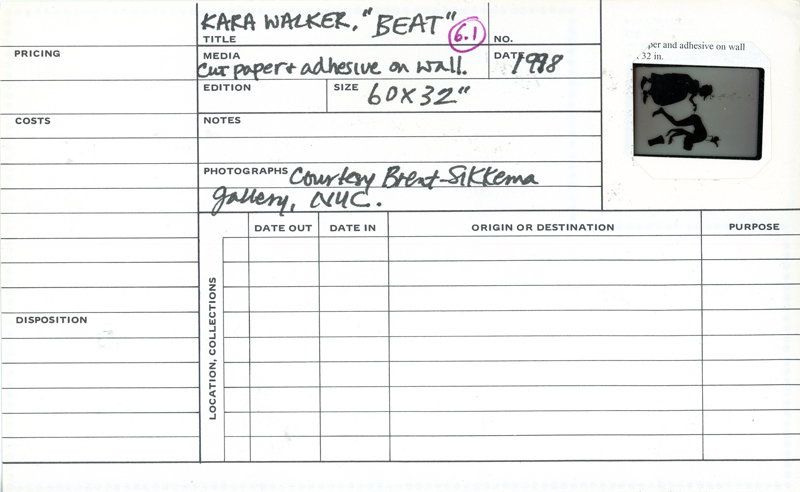 KARA WALKER, "BEAT"
6.1
TITLE
NO.
PRICING
MEDIA
Cut paper + adhesive on wall.
DATE
1998
per and adhesive on wall
32 in.
EDITION
SIZE
60 X 32"
COSTS
NOTES
PHOTOGRAPHS Courtesy Brent-Sikkema
gallery, NYC.
DATE OUT
DATE IN
ORIGIN OR DESTINATION
PURPOSE
LOCATION, COLLECTIONS
DISPOSITION